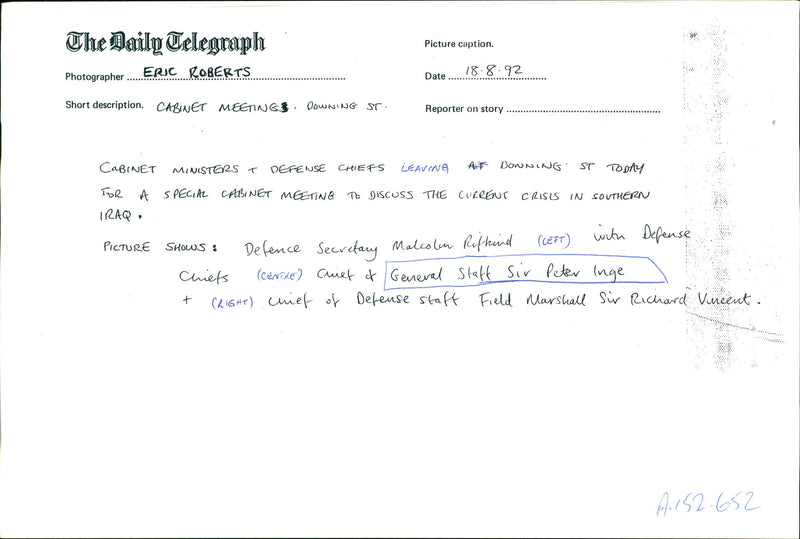 The Daily Telegraph
Picture caption.
Photographer ERIC ROBERTS
Date 18.8.92
Short description. CABINET MEETING. DOWNING ST.
Reporter on story
CABINET MINISTERS + DEFENSE CHIEFS LEAVING DOWNING ST TODAY
FOR A SPECIAL CABINET MEETING TO DISCUSS THE CURRENT CRISIS IN SOUTHERN
IRAQ.
PICTURE SHOWS: Defence Secretary Malcolm Rifkind (LEFT) with Defense
Chiefs (CENTRE) Chief of General Staff Sir Peter Inge
+ (RIGHT) Chief of Defense staff Field Marshall Sir Richard Vincent.
A.152-652